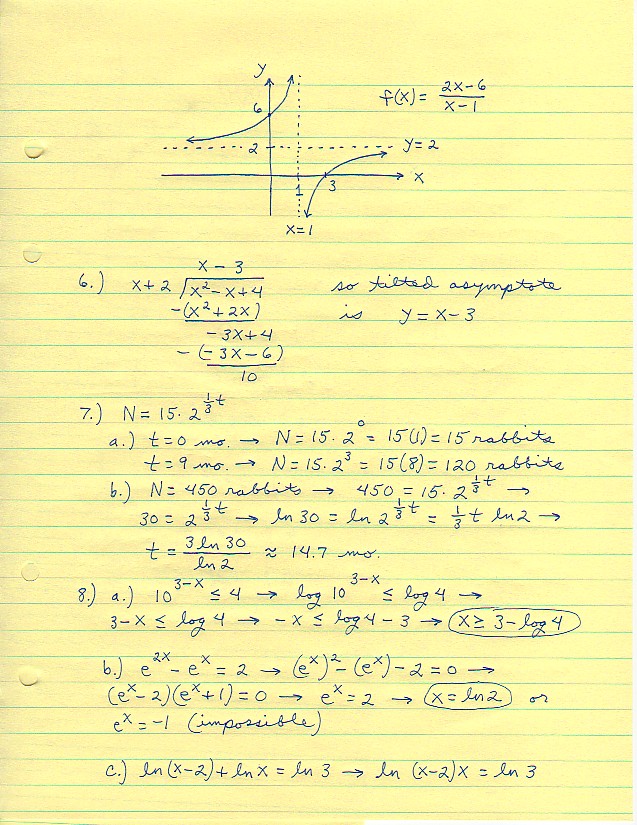 y
f(x) = (2x-6)/(x-1)
6
2
y = 2
x
1
3
x = 1
6.) x + 2 / x² - x + 4
x - 3
so tilted asymptote
-(x² + 2x)
is y = x - 3
- 3x + 4
- (- 3x - 6)
10
7.) N = 15 · 2^(1/3 t)
a.) t = 0 mo. → N = 15 · 2^0 = 15(1) = 15 rabbits
t = 9 mo. → N = 15 · 2³ = 15(8) = 120 rabbits
b.) N = 450 rabbits → 450 = 15 · 2^(1/3 t) →
30 = 2^(1/3 t) → ln 30 = ln 2^(1/3 t) = 1/3 t ln 2 →
t = (3 ln 30)/(ln 2) ≈ 14.7 mo.
8.) a.) 10^(3-x) ≤ 4 → log 10^(3-x) ≤ log 4 →
3 - x ≤ log 4 → - x ≤ log 4 - 3 → x ≥ 3 - log 4
b.) e^(2x) - e^x = 2 → (e^x)² - (e^x) - 2 = 0 →
(e^x - 2)(e^x + 1) = 0 → e^x = 2 → x = ln 2 or
e^x = -1 (impossible)
c.) ln (x-2) + ln x = ln 3 → ln (x-2)x = ln 3